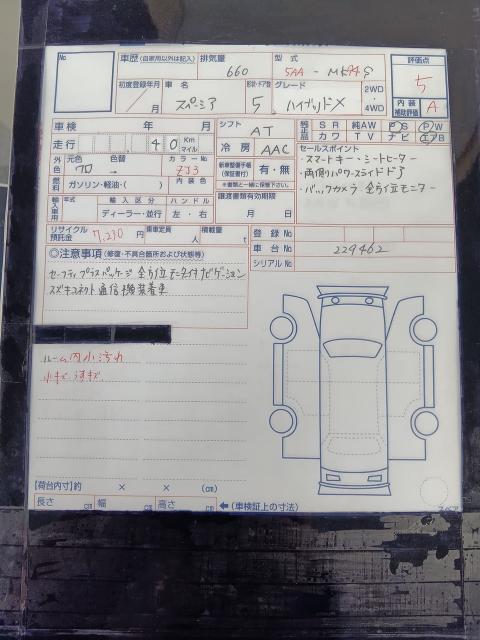 No
車歴 (自家用以外は記入) 排気量 660 型式 5AA - MK94S 評価点 5
初度登録年月 / 月 車名 スペーシア 形状・ドア数 5 グレード ハイブリッドX 2WD・4WD 内装補助評価 A
車検 年 月 シフト AT 純正品 SR 純AW PS PW
カワ TV ナビ エアB
走行 40 Km マイル 冷房 AAC セールスポイント
・スマートキー・シートヒーター
外色 元色 クロ 色替 → カラーNo ZJ3 新車整備手帳(保証書付) 有・無 ・両側パワースライドドア
燃料 ガソリン・軽油・( ) 内装色 ※書類と一緒に保管下さい。 ・バックカメラ・全方位モニター
輸入車用 年式 輸入区分 ディーラー・並行 ハンドル 左・右 譲渡書類有効期限 月 日
リサイクル預託金 7,230 円 乗車定員 人 積載量 t 登録No
◎注意事項 (修復・不具合箇所および状態等) 車台No 229462
シリアルNo
セーフティプラスパッケージ 全方位モニター付ナビゲーション
スズキコネクト通信機装着車
ルーム内小汚れ
小キズ うすキズ
【荷台内寸】約 × × (cm)
長さ cm 幅 cm 高さ cm ←(車検証上の寸法)
スペア